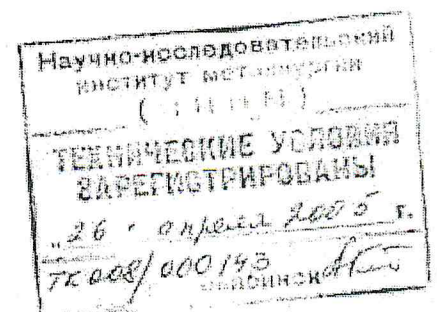 Научно-исследовательский
институт металлургии
ТЕХНИЧЕСКИЕ УСЛОВИЯ
ЗАРЕГИСТРИРОВАНЫ
„26 " апреля 2005 г.
ТК 008/000143